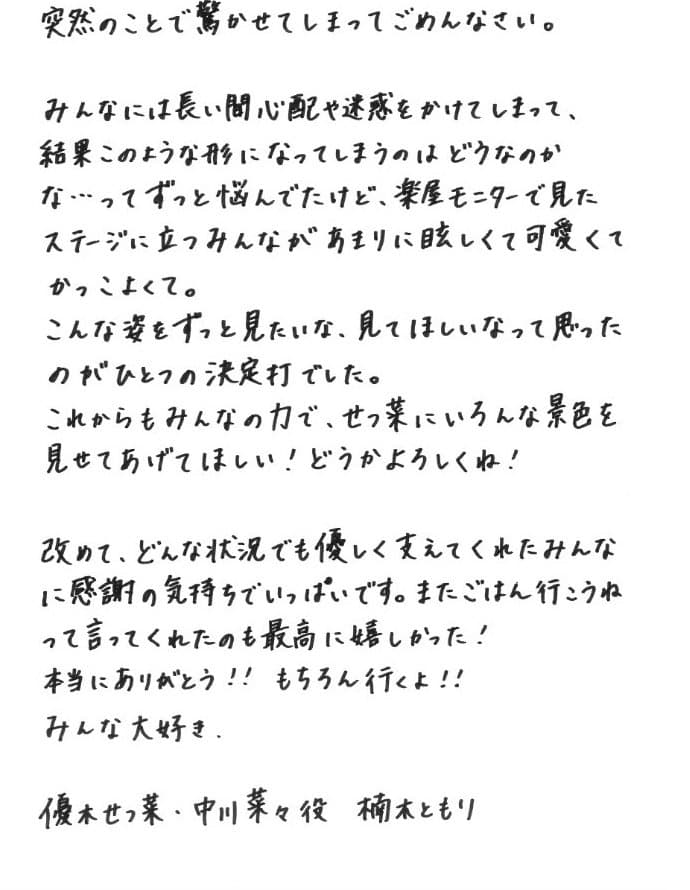 突然のことで驚かせてしまってごめんなさい。
みんなには長い間心配や迷惑をかけてしまって、
結果このような形になってしまうのはどうなのか
な…ってずっと悩んでたけど、楽屋モニターで見た
ステージに立つみんながあまりに眩しくて可愛くて
かっこよくて。
こんな姿をずっと見たいな、見てほしいなって思った
のがひとつの決定打でした。
これからもみんなの力で、せつ菜にいろんな景色を
見せてあげてほしい!どうかよろしくね!
改めて、どんな状況でも優しく支えてくれたみんな
に感謝の気持ちでいっぱいです。またごはん行こうね
って言ってくれたのも最高に嬉しかった!
本当にありがとう!! もちろん行くよ!!
みんな大好き.
優木せつ菜・中川菜々役 楠木ともり